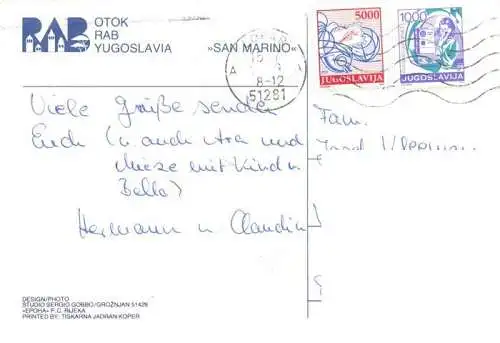 RAB
OTOK
RAB
YUGOSLAVIA
»SAN MARINO«
8-12
51281
5000
JUGOSLAVIJA
1000
JUGOSLAVIJA
Viele Grüße senden
Euch (u. auch Ara und
Mieze mit Kind u.
Bella)
Hermann u. Claudia
Fam.
Josef
DESIGN/PHOTO
STUDIO SERGIO GOBBO/GROŽNJAN 51429
»EPOHA« F.C. RIJEKA
PRINTED BY: TISKARNA JADRAN KOPER